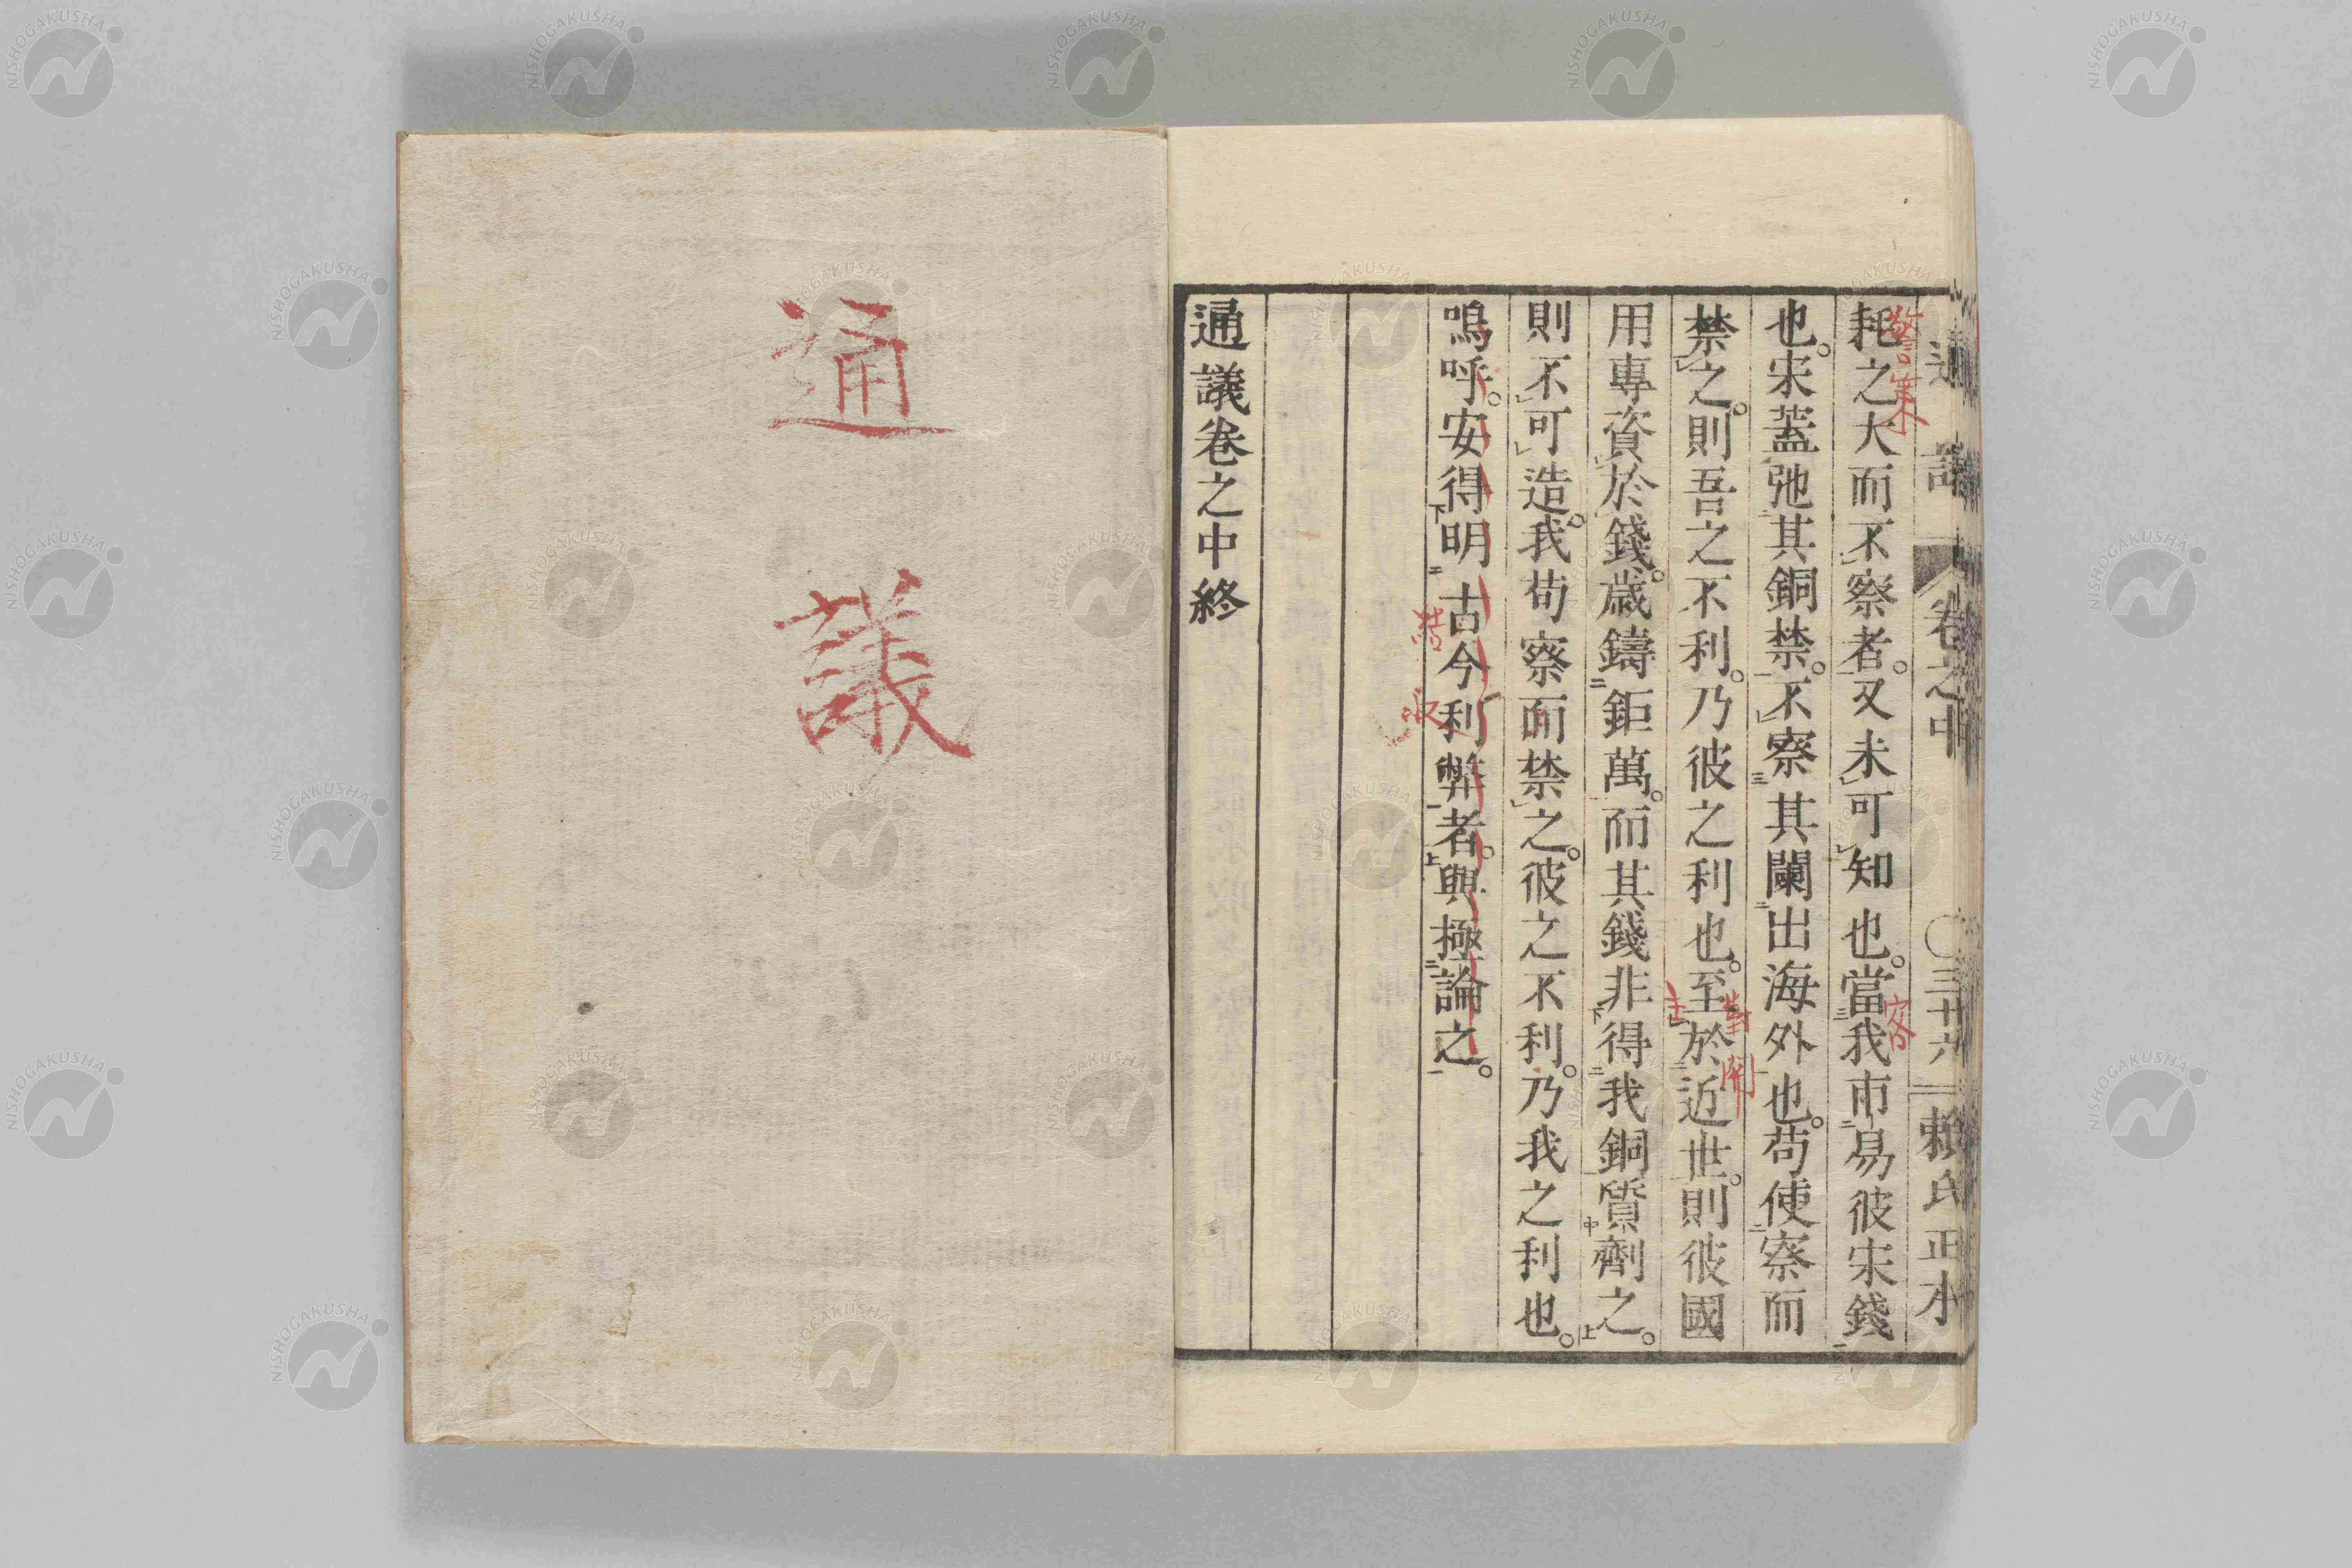 通議
卷之中
三十六
賴氏正本
耗之大而不察者。又未可知也。當我市易彼宋錢
也。宋蓋弛其銅禁。不察其闌出海外也。苟使察而
禁之。則吾之不利。乃彼之利也。至於近世。則彼國
用專資於錢。歲鑄鉅萬。而其錢非得我銅質劑之。
則不可造。我苟察而禁之。彼之不利。乃我之利也。
嗚呼。安得明古今利弊者。與極論之。
通議卷之中終
警策
客
對
開
主
結
收
通議
NISHOGAKUSHA